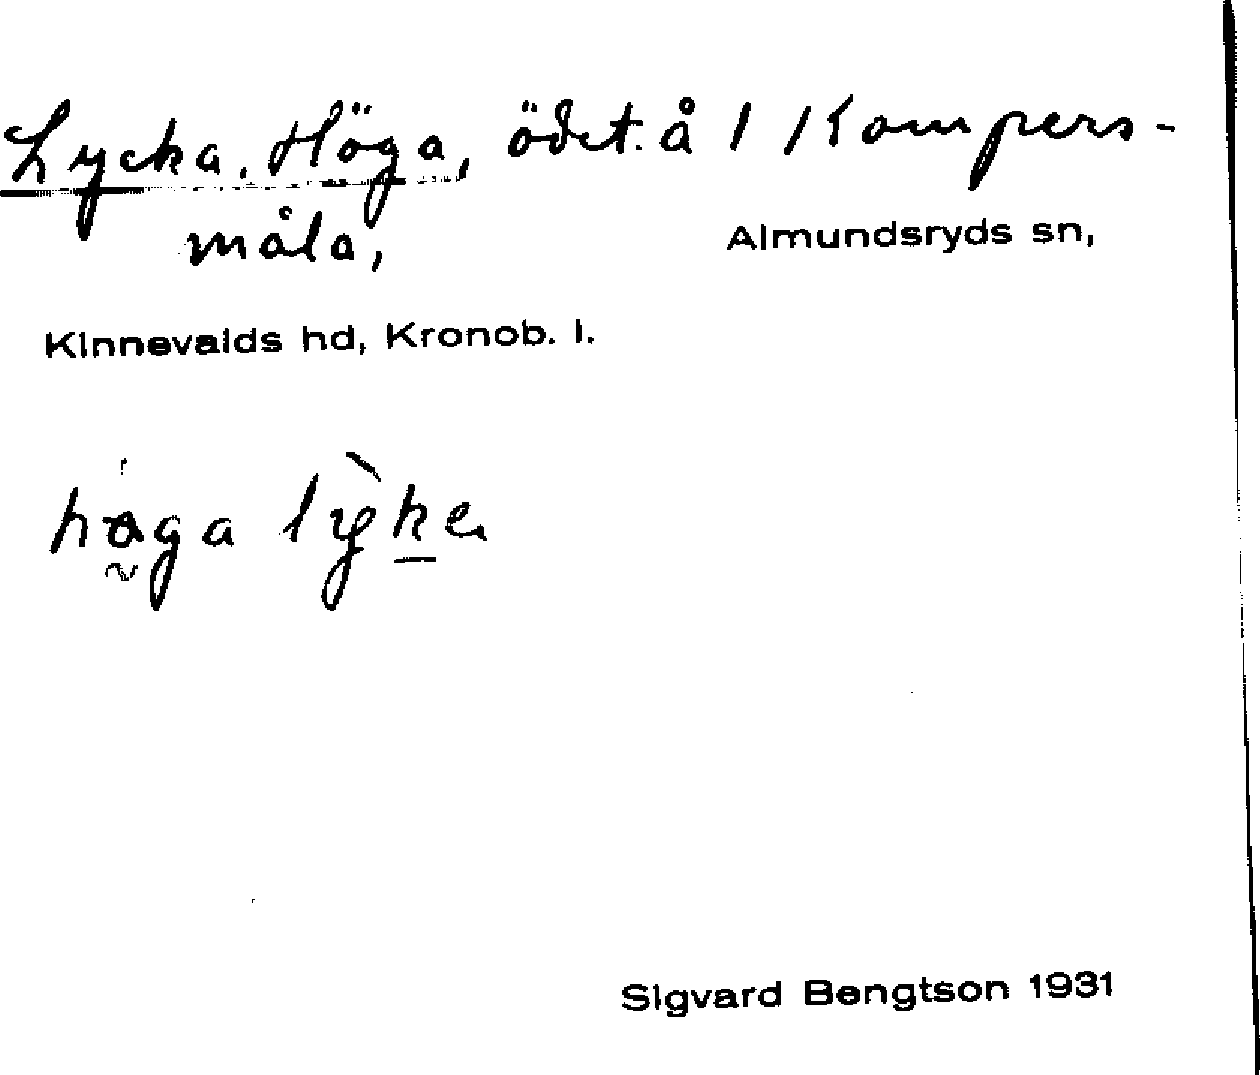 Lycka, Höga, ödet. å 1 Kompers-
måla, Almundsryds sn,
Kinnevalds hd, Kronob. l.
höga lyka
Sigvard Bengtson 1931